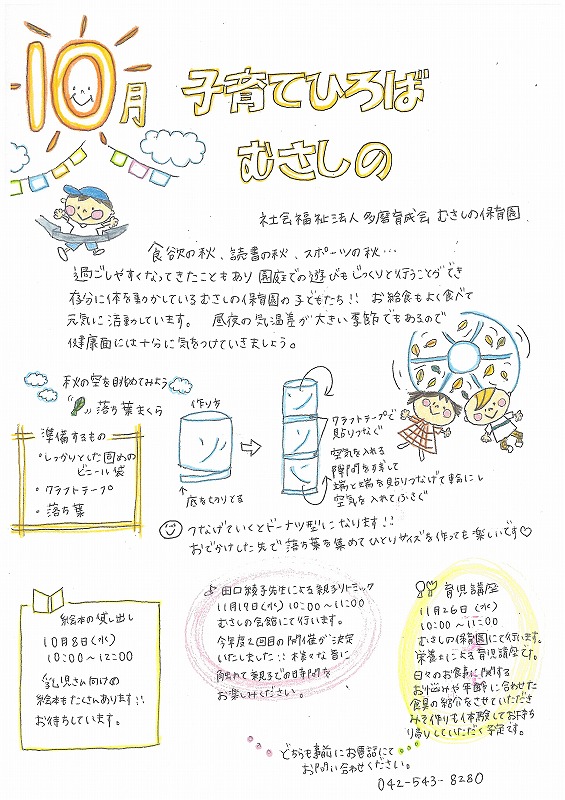 10月 子育てひろば
むさしの
社会福祉法人 多摩育成会 むさしの保育園
食欲の秋、読書の秋、スポーツの秋…
過ごしやすくなってきたこともあり 園庭での遊びもじっくりと行うことができ
存分に体を動かしているむさしの保育園の子どもたち!! お給食もよく食べて
元気に活動しています。 昼夜の気温差が大きい季節でもあるので
健康面には十分に気をつけていきましょう。
秋の空を眺めてみよう
落ち葉まくら
準備するもの
・しっかりとした固めの
ビニール袋
・クラフトテープ
・落ち葉
作り方
底を切りとる
クラフトテープで
貼りつなぐ
空気を入れる
隙間を残して
端と端を貼りつなげて輪にし
空気を入れてふさぐ
つなげていくとドーナツ型になります!!
おでかけした先で落ち葉を集めてひとりサイズを作っても楽しいです♡
絵本の貸し出し
10月8日(水)
10:00~12:00
乳児さん向けの
絵本もたくさんあります!!
お待ちしています。
♪田口綾子先生による親子リトミック
11月19日(水) 10:00~11:00
むさしの会館にて行います。
今年度2回目の開催が決定
いたしました!! 様々な音に
触れて親子での時間を
お楽しみください。
育児講座
11月26日(水)
10:00~11:00
むさしの保育園にて行います。
栄養士による育児講座です。
日々のお食事に関する
お悩みや年齢に合わせた
食具の紹介をさせていただき
みそ作りも体験してお持ち
帰りしていただく予定です。
どちらも事前にお電話にて
お問い合わせください。
042-543-8280